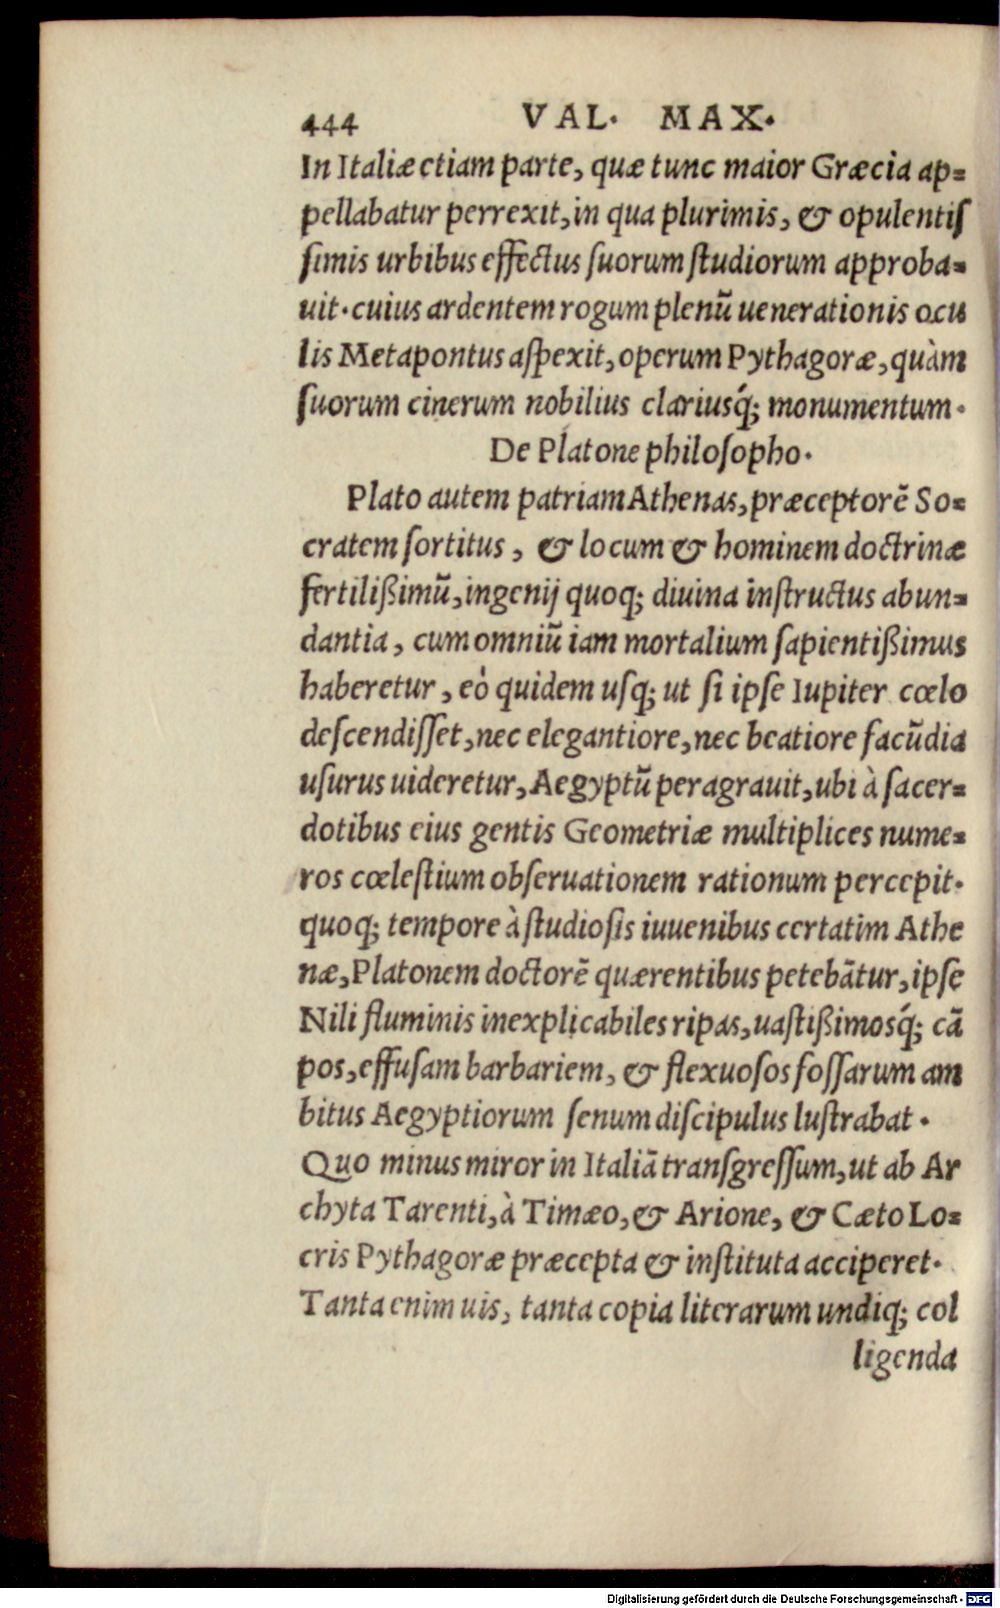 444 VAL. MAX.
In Italiæ etiam parte, quæ tunc maior Græcia ap=
pellabatur perrexit, in qua plurimis, & opulentiſ
ſimis urbibus effectus ſuorum ſtudiorum approba=
uit. cuius ardentem rogum plenũ uenerationis ocu
lis Metapontus aſpexit, operum Pythagoræ, quàm
ſuorum cinerum nobilius clariusq́; monumentum.
De Platone philoſopho.
Plato autem patriam Athenas, præceptorẽ So=
cratem ſortitus, & locum & hominem doctrinæ
fertilißimũ, ingenij quoq; diuina inſtructus abun=
dantia, cum omniũ iam mortalium ſapientißimus
haberetur, eò quidem uſq; ut ſi ipſe Iupiter cœlo
deſcendiſſet, nec elegantiore, nec beatiore facũdia
uſurus uideretur, Aegyptũ peragrauit, ubi à ſacer=
dotibus eius gentis Geometriæ multiplices nume=
ros cœleſtium obſeruationem rationum percepit.
quoq; tempore à ſtudioſis iuuenibus certatim Athe
næ, Platonem doctorẽ quærentibus petebãtur, ipſe
Nili fluminis inexplicabiles ripas, uaſtißimosq́; cã
pos, effuſam barbariem, & flexuoſos foſſarum am
bitus Aegyptiorum ſenum diſcipulus luſtrabat.
Quo minus miror in Italiã tranſgreſſum, ut ab Ar
chyta Tarenti, à Timæo, & Arione, & Cæto Lo=
cris Pythagoræ præcepta & inſtituta acciperet.
Tanta enim uis, tanta copia literarum undiq; col
ligenda
Digitalisierung gefördert durch die Deutsche Forschungsgemeinschaft - DFG